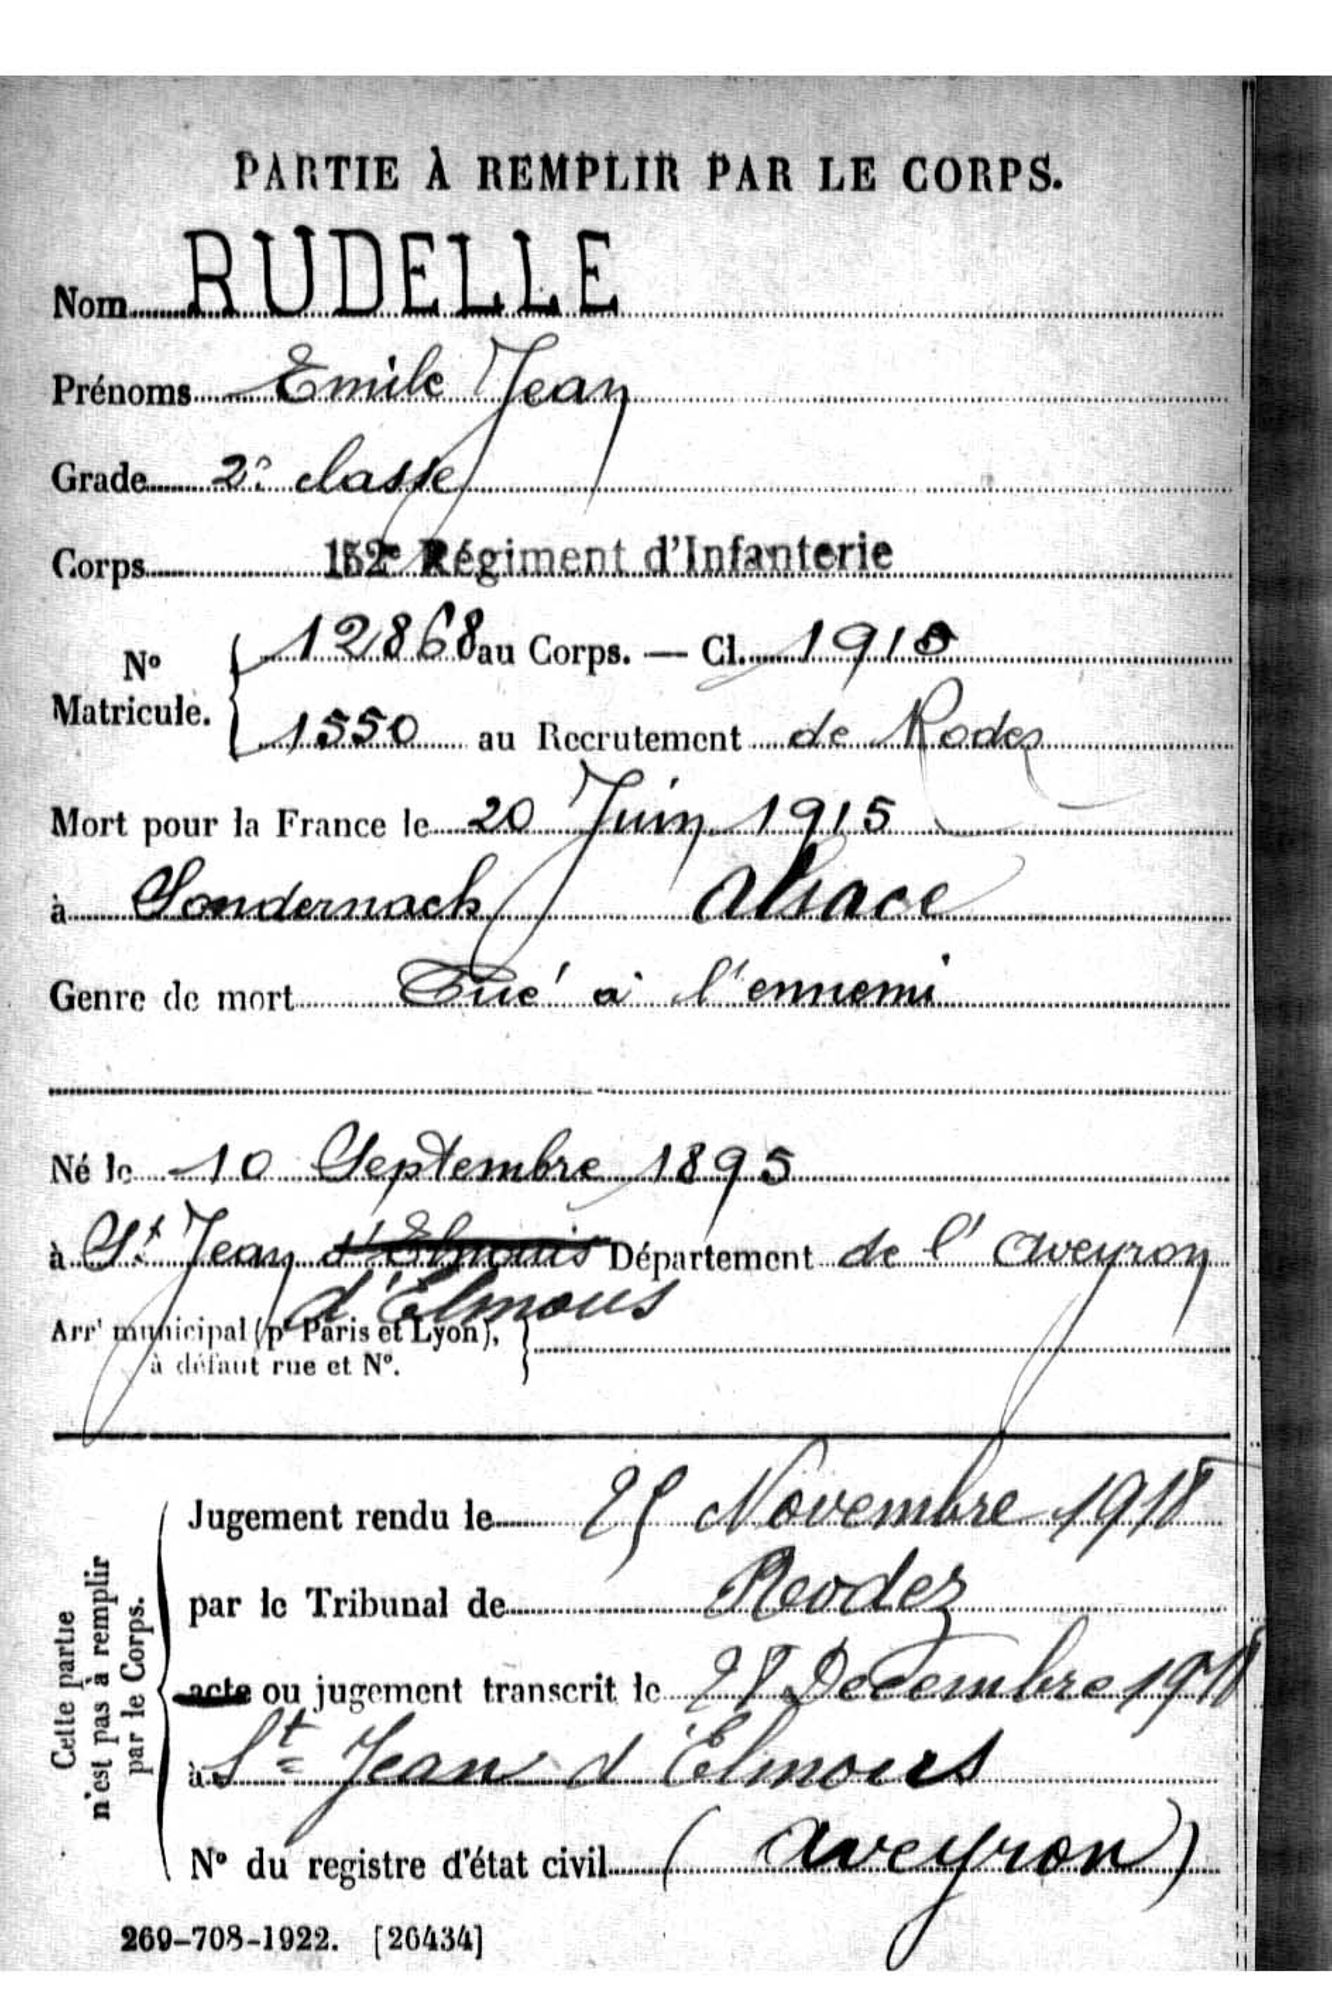 PARTIE À REMPLIR PAR LE CORPS.
Nom RUDELLE
Prénoms Emile Jean
Grade 2e classe
Corps 152e Régiment d'Infanterie
N° Matricule. 12868 au Corps. — Cl. 1915
1550 au Recrutement de Rodez
Mort pour la France le 20 Juin 1915
à Sondernach Alsace
Genre de mort Tué à l'ennemi
Né le 10 Septembre 1895
à St Jean d'Elmouis Département de l'Aveyron
d'Elmous
Arrt municipal (pr Paris et Lyon),
à défaut rue et N°.
Cette partie
n'est pas à remplir
par le Corps.
Jugement rendu le 25 Novembre 1918
par le Tribunal de Rodez
acte ou jugement transcrit le 28 Decembre 1918
à St Jean d'Elmous
N° du registre d'état civil (Aveyron)
269-708-1922. [26434]